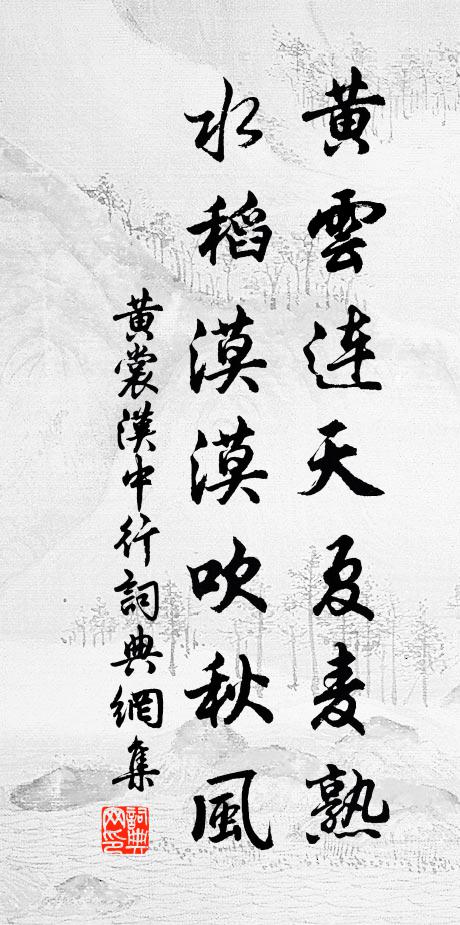 黄雲連天夏麦熟
水稻漠漠吹秋風
黄裳漢中行詞典網集
詞典
网印